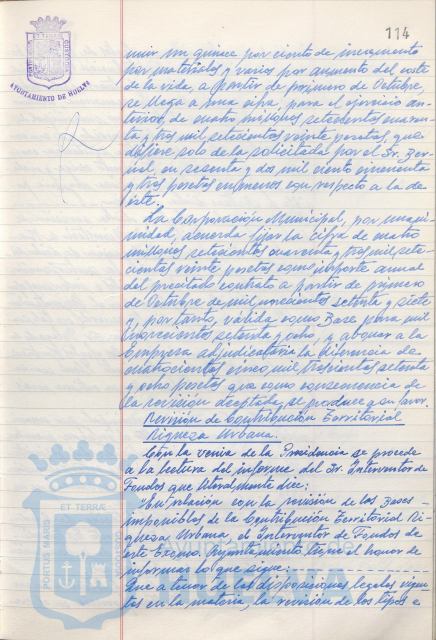 114
AYUNTAMIENTO DE HUELVA
mir un quince por ciento de incremento
por materiales y varios por aumento del coste
de la vida, a partir de primero de Octubre,
se llega a una cifra, para el ejercicio an-
terior, de cuatro millones setecientos cuaren-
ta y tres mil setecientos veinte pesetas, que
difiere solo de la solicitada por el Sr. Ber-
nal, en sesenta y dos mil ciento cincuenta
y tres pesetas en menos con respecto a la de
éste.
La Corporación Municipal, por unani-
midad, acuerda fijar la cifra de cuatro
millones setecientos cuarenta y tres mil sete-
cientos veinte pesetas como importe anual
del precitado contrato a partir de primero
de Octubre de mil novecientos setenta y siete
y, por tanto, válida como Base para mil
novecientos setenta y ocho, y abonar a la
Empresa adjudicataria la diferencia de
cuatrocientos cinco mil trescientos setenta
y ocho pesetas que como consecuencia de
la revisión aceptada, se produce a su favor.
Revisión de Contribución Territorial
Riqueza Urbana.
Con la venia de la Presidencia se procede
a la lectura del informe del Sr. Interventor de
Fondos que literalmente dice:
"En relación con la revisión de las Bases
imponibles de la Contribución Territorial Ri-
queza Urbana, el Interventor de Fondos de
este Excmo. Ayuntamiento tiene el honor de
informar lo que sigue:
Que a tenor de las disposiciones legales vigen-
tes en la materia, la revisión de los tipos e
ET TERRÆ
PORTUS MARIS
CUSTODIA